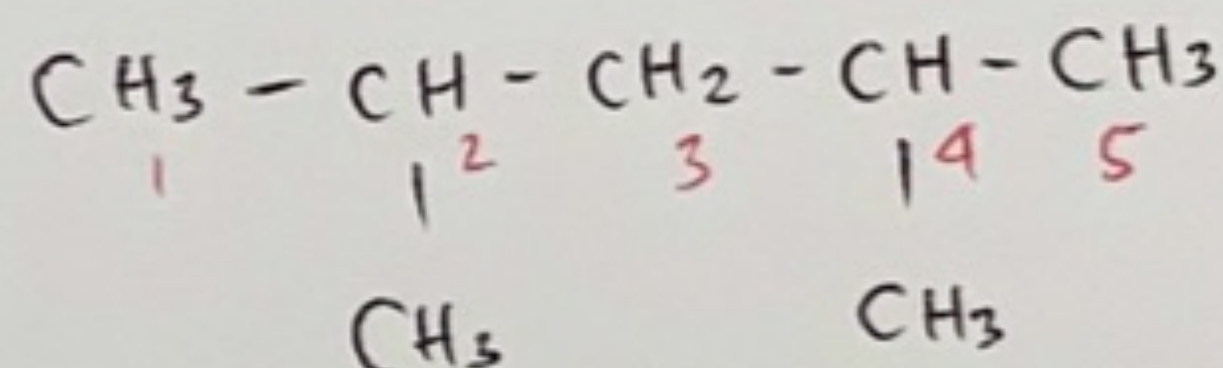 CH3 - CH - CH2 - CH - CH3
1 | 2 3 | 4 5
CH3 CH3